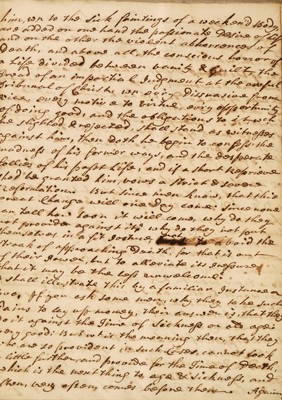 him, wn to the Sick faintings of a weakend Body,
are added on one hand the passionate Desire of Life,
and on the other the violent abhorrence of
Death, and above all, the conscious horror of
a Life divided between vanity & guilt, the
dread of an impartial Judgment at the awful
Tribunal of Christ, wn every Dissuasive from
vice, every motive to Virtue, every opportunity
of doing good, and the obligations to it, wch
he slighted & rejected, shall stand as witnesses
against him, then doth he begin to confess the
madness of his former ways, and the desperate
follies of his past Life, and if a short Reprieve
shd be granted him, vows a strict & severe
Reformation. But since all know, that this
great Change will one day come; since none
can tell how soon it will come, why do they
not provide against it? why do they not put
themselves in a fit posture, not to avoid the
stroak of approaching Death, for that is out
of their power, but to attend its pleasure,
that it may be the less unwelcome?
I shall illustrate this by a familiar Instance
If you ask some men, why they take such
pains to lay up money, their answer is, that they
against the time of Sickness or old age:
very good: is not is the meaning then, that they
who are so provident in such Cases, cannot look
a little further, and provide for the Time of Death,
which is the next thing to age & Sickness, and
them, very often, comes before them. Again